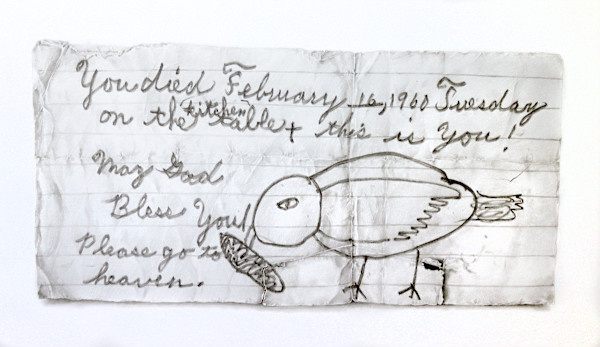 You died February 16, 1960 Tuesday
on the kitchen table & this is You!
May God
Bless You!
Please go to
heaven.